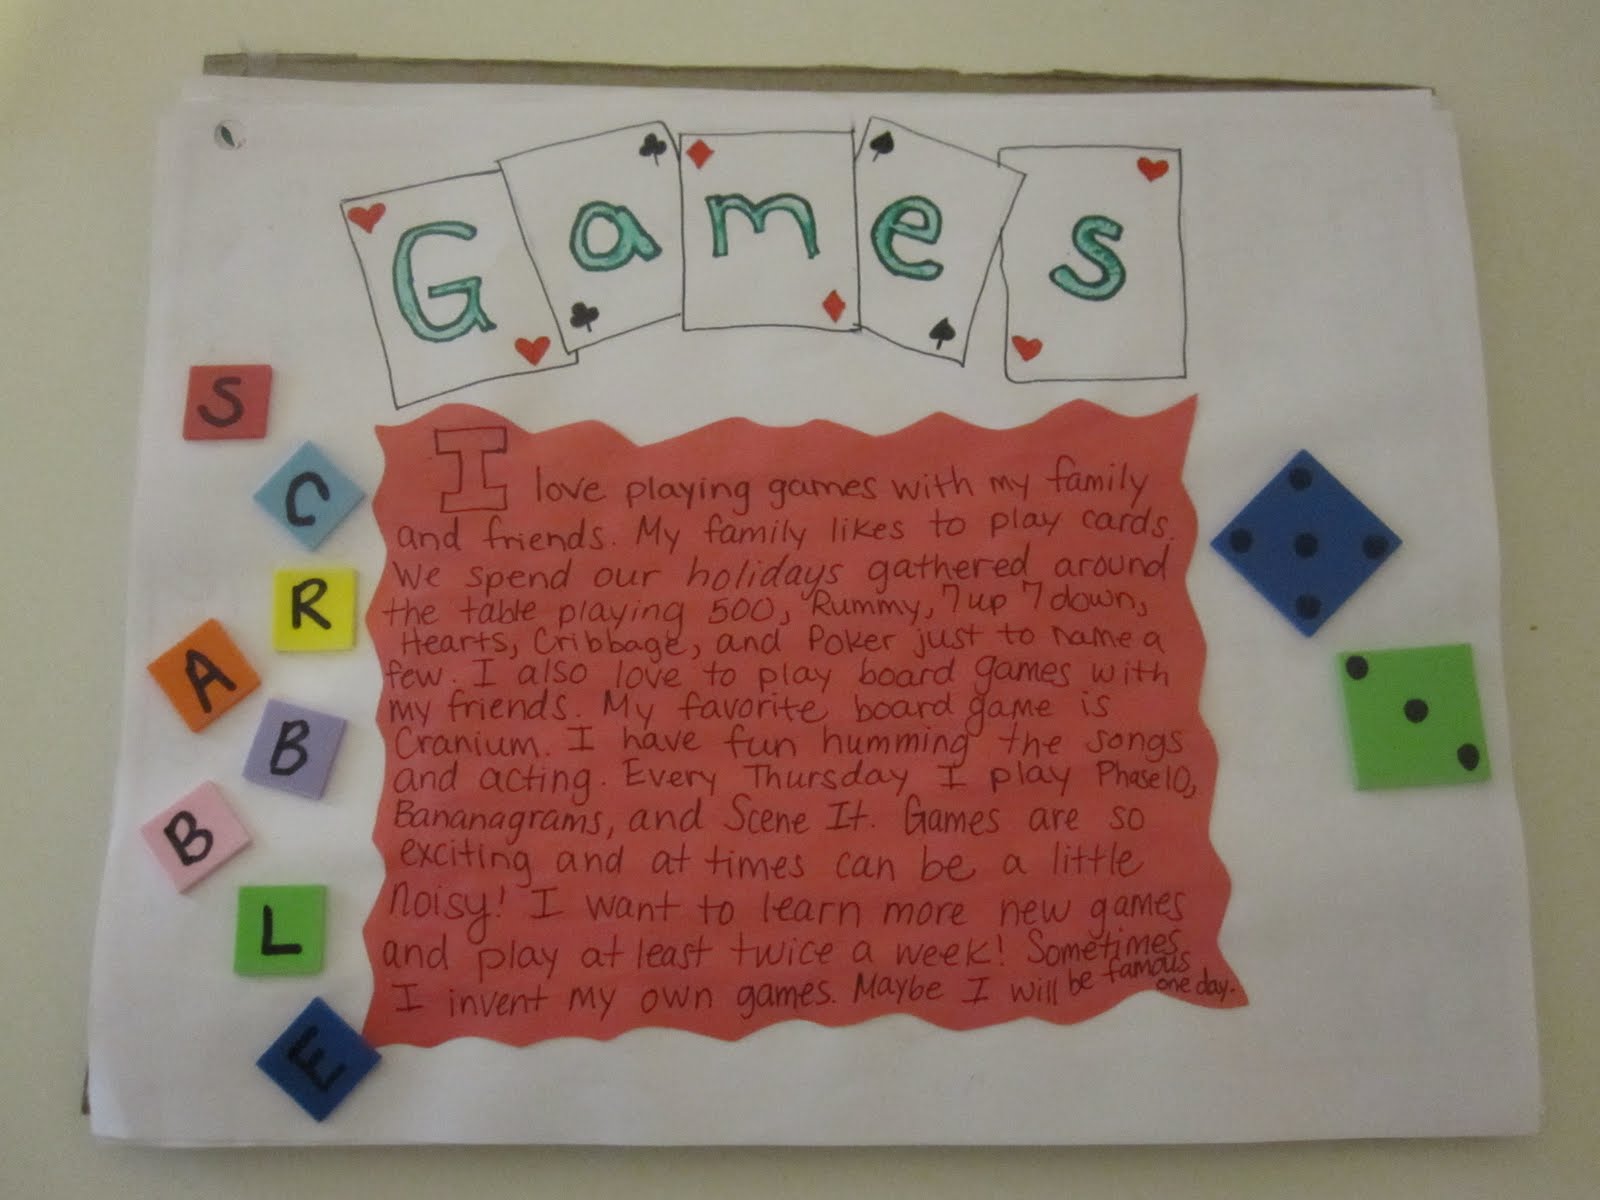 Games
S
C
R
A
B
B
L
E
I love playing games with my family
and friends. My family likes to play cards.
We spend our holidays gathered around
the table playing 500, Rummy, 7 up 7 down,
Hearts, Cribbage, and Poker just to name a
few. I also love to play board games with
my friends. My favorite board game is
Cranium. I have fun humming the songs
and acting. Every Thursday I play Phase 10,
Bananagrams, and Scene It. Games are so
exciting and at times can be a little
noisy! I want to learn more new games
and play at least twice a week! Sometimes
I invent my own games. Maybe I will be famous
one day.